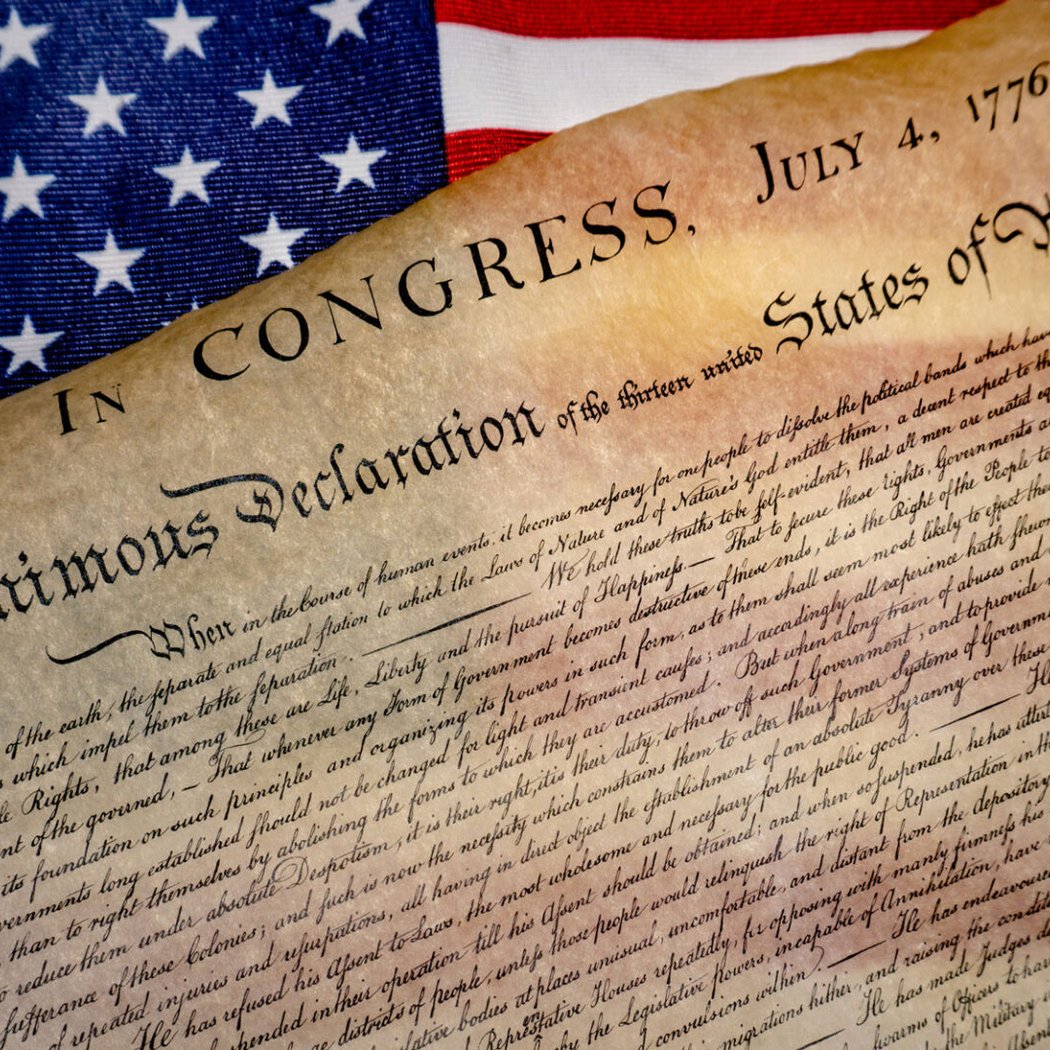 In CONGRESS, July 4, 1776
nimous Declaration of the thirteen united States of
When in the Course of human events, it becomes necessary for one people to dissolve the political bands which have
of the earth, the separate and equal station to which the Laws of Nature and of Nature's God entitle them, a decent respect to the
which impel them to the separation. — We hold these truths to be self-evident, that all men are created eq
le Rights, that among these are Life, Liberty and the pursuit of Happiness. — That to secure these rights, Governments a
nt of the governed, — That whenever any Form of Government becomes destructive of these ends, it is the Right of the People to
its foundation on such principles and organizing its powers in such form, as to them shall seem most likely to effect the
vernments long established should not be changed for light and transient causes; and accordingly all experience hath shewn
than to right themselves by abolishing the forms to which they are accustomed. But when a long train of abuses and
reduce them under absolute Despotism, it is their right, it is their duty, to throw off such Government, and to provide
sufferance of these Colonies; and such is now the necessity which constrains them to alter their former Systems of Governme
of repeated injuries and usurpations, all having in direct object the establishment of an absolute Tyranny over these
He has refused his Assent to Laws, the most wholesome and necessary for the public good. — He
pended in their operation till his Assent should be obtained; and when so suspended, he has utterl
ge districts of people, unless those people would relinquish the right of Representation in the
lative bodies at places unusual, uncomfortable, and distant from the depository
Representative Houses repeatedly, for opposing with manly firmness his
by the Legislative Powers, incapable of Annihilation, have
convulsions within. — He has endeavoure
migrations hither, and raising the condit
He has made Judges d
swarms of Officers to hav
the Military